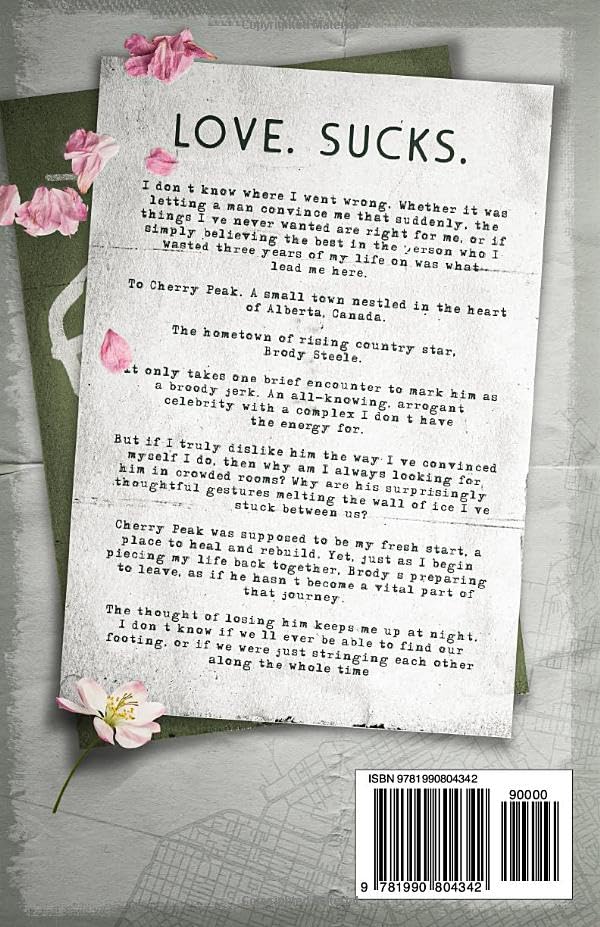 Copyrighted Material
LOVE. SUCKS.
I don t know where I went wrong. Whether it was
letting a man convince me that suddenly, the
things I ve never wanted are right for me, or if
simply believing the best in the person who I
wasted three years of my life on was what
lead me here.
To Cherry Peak. A small town nestled in the heart
of Alberta, Canada.
The hometown of rising country star,
Brody Steele.
It only takes one brief encounter to mark him as
a broody jerk. An all-knowing, arrogant
celebrity with a complex I don t have
the energy for.
But if I truly dislike him the way I ve convinced
myself I do, then why am I always looking for
him in crowded rooms? Why are his surprisingly
thoughtful gestures melting the wall of ice I ve
stuck between us?
Cherry Peak was supposed to be my fresh start, a
place to heal and rebuild. Yet, just as I begin
piecing my life back together, Brody s preparing
to leave, as if he hasn t become a vital part of
that journey.
The thought of losing him keeps me up at night.
I don t know if we ll ever be able to find our
footing, or if we were just stringing each other
along the whole time
ISBN 9781990804342
90000
9 781990 804342
Copyrighted Material